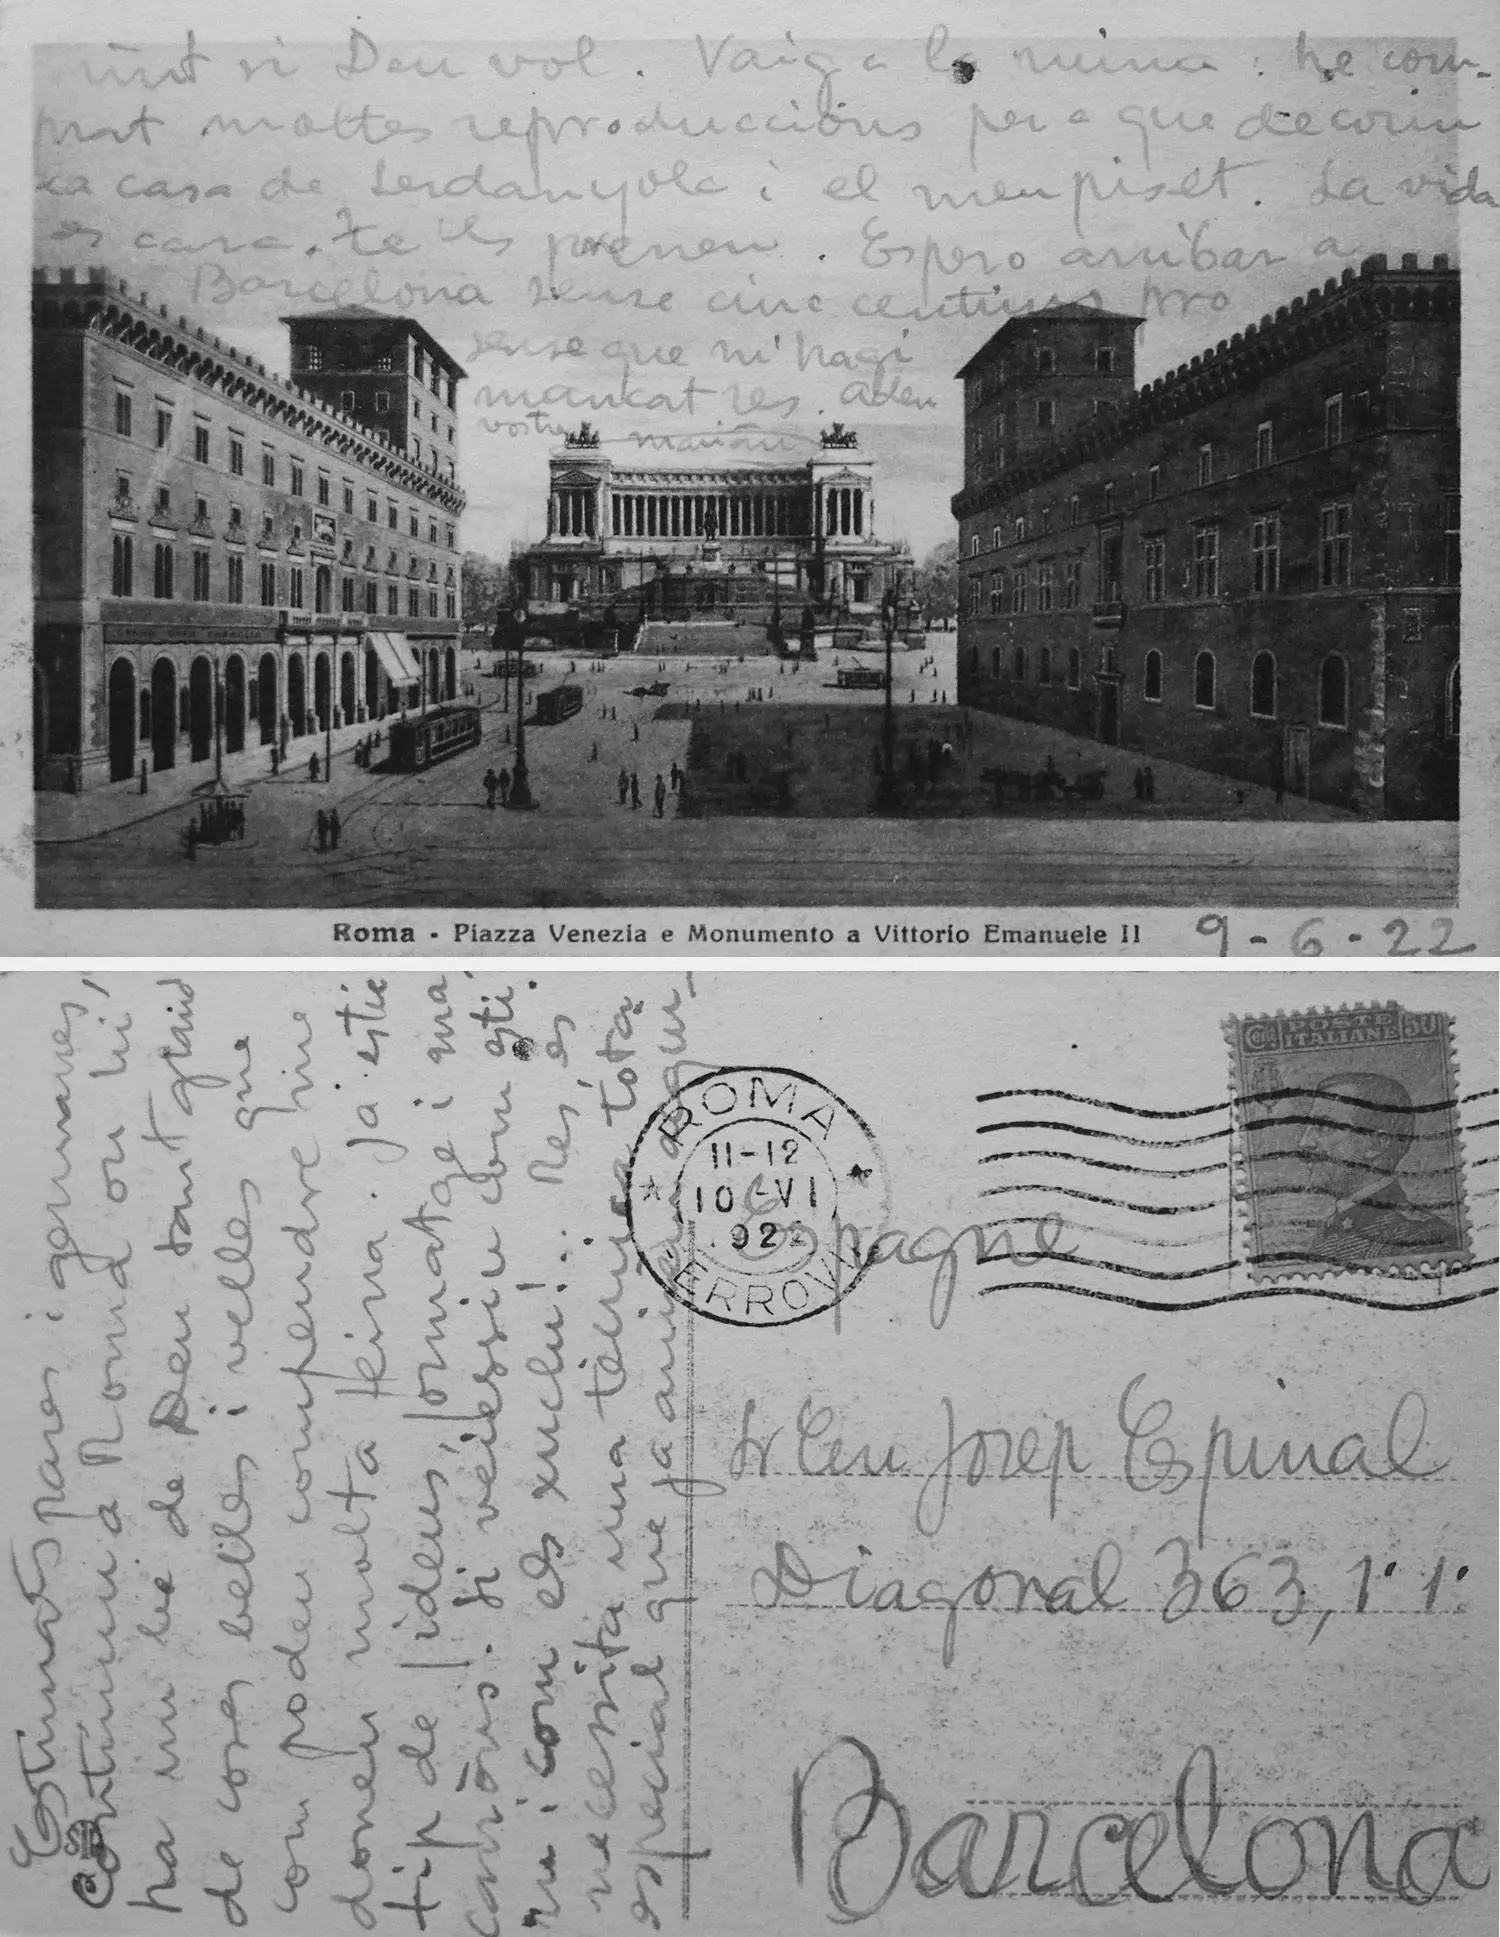 nint si Deu vol. Vaig a la mina: he com-
prat moltes reproduccions per a que decorin
la casa de Serdanyola i el meu piset. La vida
es cara. te els prenen. Espero arribar a
Barcelona sense cinc centims pro
sense que m'hagi
mancat res. adeu
vostre
marian
GRAND CAFE FARAGLIA
Roma - Piazza Venezia e Monumento a Vittorio Emanuele II
9-6-22
Estimats pares i germanes,
Continuu a Roma on hi
ha un bé de Deu tant gran
de coses belles i velles que
com podeu compendre me
donen molta feina. Ja estic
tip de fideus, formatge i ma
carrons. Si veiessiu com esti
ru i com els xuclu!.. Res es
necessita una tècnica tota
especial que ja aniré
CENT. POSTE ITALIANE 50
ROMA
11-12
10-VI
922
FERROVIA
Espagne
Sr En Josep Espinal
Diagonal 363, 1º 1ª
Barcelona